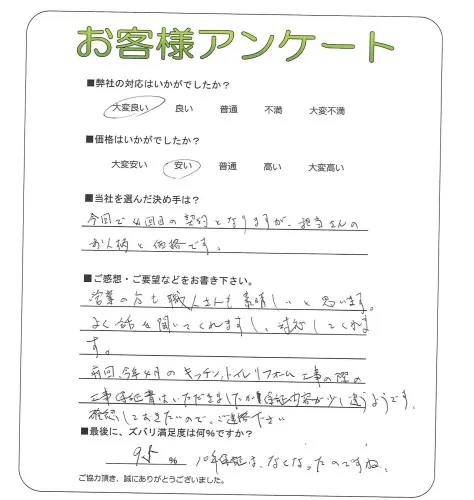 お客様アンケート
■弊社の対応はいかがでしたか？
大変良い 良い 普通 不満 大変不満
■価格はいかがでしたか？
大変安い 安い 普通 高い 大変高い
■当社を選んだ決め手は？
今回で4回目の契約となりますが、担当さんの
お人柄と価格です。
■ご感想・ご要望などをお書き下さい。
営業の方も職人さんも素晴しいと思います。
よく話を聞いてくれますし、対応してくれま
す。
前回、今年4月のキッチン、トイレリフォーム工事の際の
工事保証書はいただきましたが保証内容が少し違うようです。
確認しておきたいので、ご連絡下さい
■最後に、ズバリ満足度は何％ですか？
95 % 10年保証は、なくなったのですね。
ご協力頂き、誠にありがとうございました。